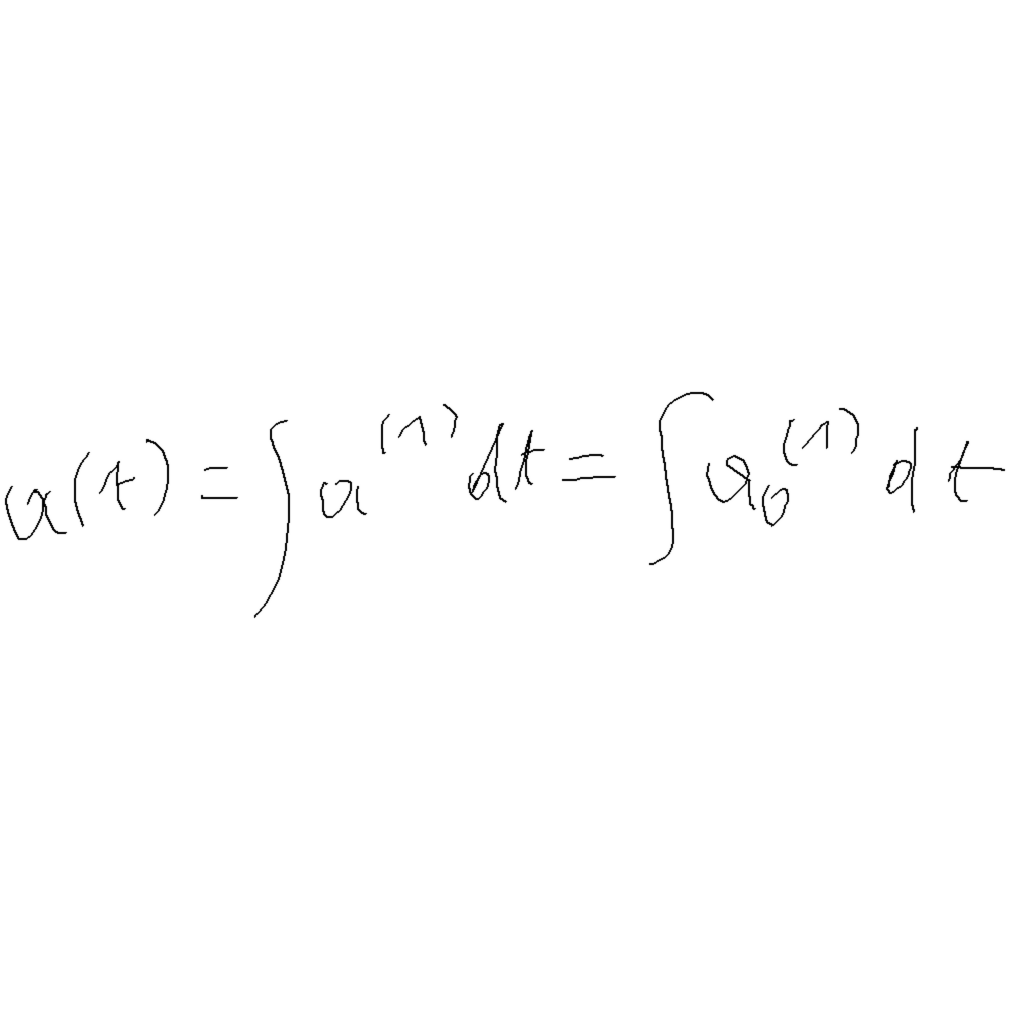 a(t) = ∫ a^{(1)} dt = ∫ a_0^{(1)} dt